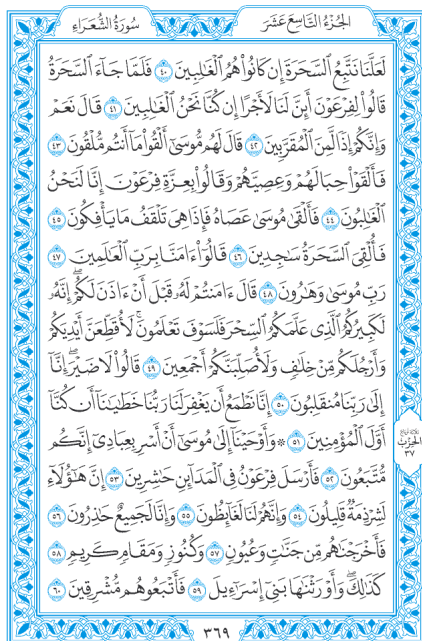 سُورَةُ الشُّعَرَاءِ
الجُزْءُ التَّاسِعَ عَشَرَ
لَعَلَّنَا نَتَّبِعُ السَّحَرَةَ إِن كَانُوا۟ هُمُ الْغَٰلِبِينَ ٤٠ فَلَمَّا جَآءَ السَّحَرَةُ
قَالُوا۟ لِفِرْعَوْنَ أَئِنَّ لَنَا لَأَجْرًا إِن كُنَّا نَحْنُ الْغَٰلِبِينَ ٤١ قَالَ نَعَمْ
وَإِنَّكُمْ إِذًا لَّمِنَ الْمُقَرَّبِينَ ٤٢ قَالَ لَهُم مُّوسَىٰٓ أَلْقُوا۟ مَآ أَنتُم مُّلْقُونَ ٤٣
فَأَلْقَوْا۟ حِبَالَهُمْ وَعِصِيَّهُمْ وَقَالُوا۟ بِعِزَّةِ فِرْعَوْنَ إِنَّا لَنَحْنُ
الْغَٰلِبُونَ ٤٤ فَأَلْقَىٰ مُوسَىٰ عَصَاهُ فَإِذَا هِىَ تَلْقَفُ مَا يَأْفِكُونَ ٤٥
فَأُلْقِىَ السَّحَرَةُ سَٰجِدِينَ ٤٦ قَالُوٓا۟ ءَامَنَّا بِرَبِّ الْعَٰلَمِينَ ٤٧
رَبِّ مُوسَىٰ وَهَٰرُونَ ٤٨ قَالَ ءَامَنتُمْ لَهُۥ قَبْلَ أَنْ ءَاذَنَ لَكُمْ ۖ إِنَّهُۥ
لَكَبِيرُكُمُ الَّذِى عَلَّمَكُمُ السِّحْرَ فَلَسَوْفَ تَعْلَمُونَ ۚ لَأُقَطِّعَنَّ أَيْدِيَكُمْ
وَأَرْجُلَكُم مِّنْ خِلَٰفٍ وَلَأُصَلِّبَنَّكُمْ أَجْمَعِينَ ٤٩ قَالُوا۟ لَا ضَيْرَ ۖ إِنَّآ
إِلَىٰ رَبِّنَا مُنقَلِبُونَ ٥٠ إِنَّا نَطْمَعُ أَن يَغْفِرَ لَنَا رَبُّنَا خَطَٰيَٰنَآ أَن كُنَّآ
أَوَّلَ الْمُؤْمِنِينَ ٥١ ۞ وَأَوْحَيْنَآ إِلَىٰ مُوسَىٰٓ أَنْ أَسْرِ بِعِبَادِىٓ إِنَّكُم
مُّتَّبَعُونَ ٥٢ فَأَرْسَلَ فِرْعَوْنُ فِى الْمَدَآئِنِ حَٰشِرِينَ ٥٣ إِنَّ هَٰٓؤُلَآءِ
لَشِرْذِمَةٌ قَلِيلُونَ ٥٤ وَإِنَّهُمْ لَنَا لَغَآئِظُونَ ٥٥ وَإِنَّا لَجَمِيعٌ حَٰذِرُونَ ٥٦
فَأَخْرَجْنَٰهُم مِّن جَنَّٰتٍ وَعُيُونٍ ٥٧ وَكُنُوزٍ وَمَقَامٍ كَرِيمٍ ٥٨
كَذَٰلِكَ ۖ وَأَوْرَثْنَٰهَا بَنِىٓ إِسْرَٰٓءِيلَ ٥٩ فَأَتْبَعُوهُم مُّشْرِقِينَ ٦٠
الحِزْب
٣٧
٣٦٩